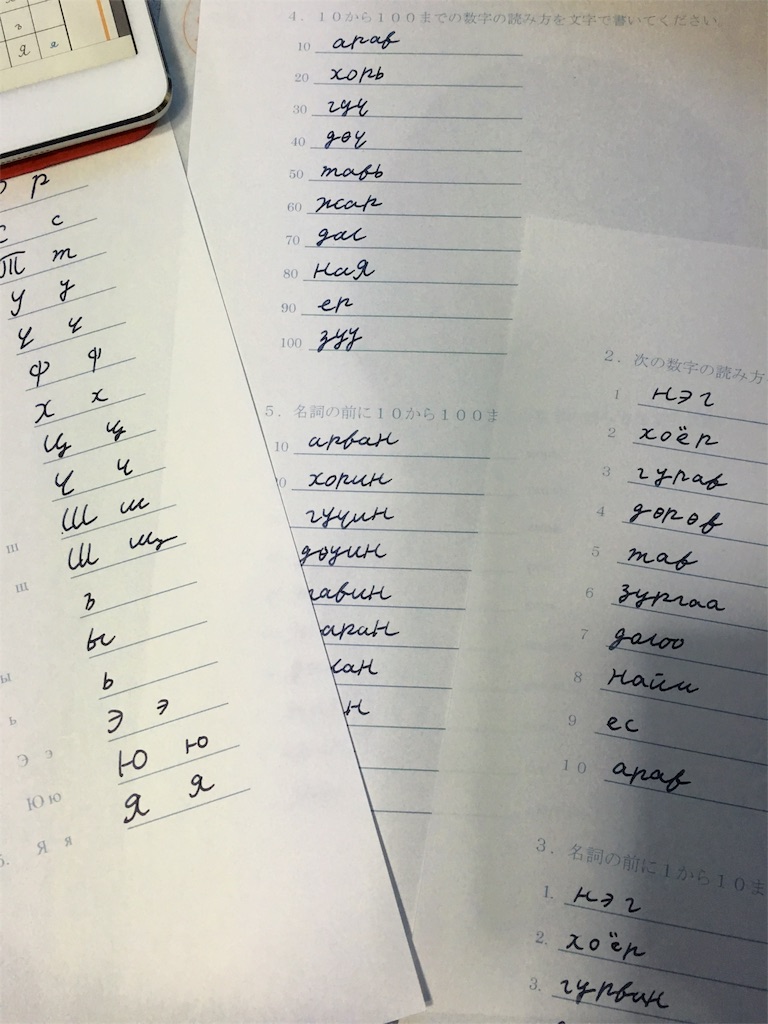 з
Я я
р
с
Т т
У у
Ү ү
Ф ф
Х х
Ц ц
Ч ч
Ш ш
ш Ш щ
щ ъ
ы
ы ь
ь Э э
Э э Ю ю
Ю ю Я я
Я я
4．１０から１００までの数字の読み方を文字で書いてください。
10 арав
20 хорь
30 гуч
40 дөч
50 тавь
60 жар
70 дал
80 ная
90 ер
100 зуу
5．名詞の前に１０から１００ま
10 арван
хорин
гучин
дөчин
тавин
аран
лан
н
2．次の数字の読み方
1 нэг
2 хоёр
3 гурав
4 дөрөв
5 тав
6 зургаа
7 долоо
8 найм
9 ес
10 арав
3．名詞の前に１から１０ま
1. нэг
2. хоёр
3. гурван